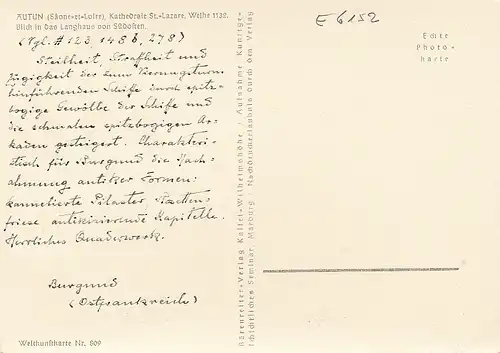 AUTUN (Sâone-et-Loire), Kathedrale St.-Lazare, Weihe 1132.
Blick in das Langhaus von Südosten.
(Vgl. # 123, 145b, 278)
Steilheit, Straffheit und
Zügigkeit des zum Vierungsturm
hinführenden Schiffs durch spitz-
bogige Gewölbe der Schiffe und
die schmalen spitzbogigen Ar-
kaden gesteigert. Charakteri-
stisch für Burgund die Nach-
ahmung antiker Formen:
kannelierte Pilaster, Rosetten-
friese, antikisierende Kapitelle.
Herrliches Quaderwerk.
Burgund
(Ostfrankreich)
Weltkunstkarte Nr. 809
E 6152
Echte
Photo-
karte
Bärenreiter-Verlag Kassel-Wilhelmshöhe - Aufnahme Kunstge-
schichtliches Seminar, Marburg - Nachdruckerlaubnis durch den Verlag